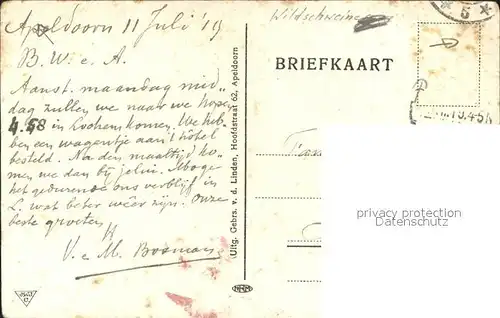 Apeldoorn 11 Juli '19
B. W. e. A.
Aanst. maandag mid-
dag zullen we naar we hopen
4.58 in Lochem komen. We heb-
ben een wagentje aan 't hôtel
besteld. Na den maaltijd ko-
men we dan bij jelui. Moge
het gedurende ons verblijf in
L. wat beter wêer zijn. Onze
beste groeten
V. e. M. Bosman
Uitg. Gebrs. v. d. Linden, Hoofdstraat 62, Apeldoorn
Wildschweine
BRIEFKAART
5
Fam
privacy protection
Datenschutz